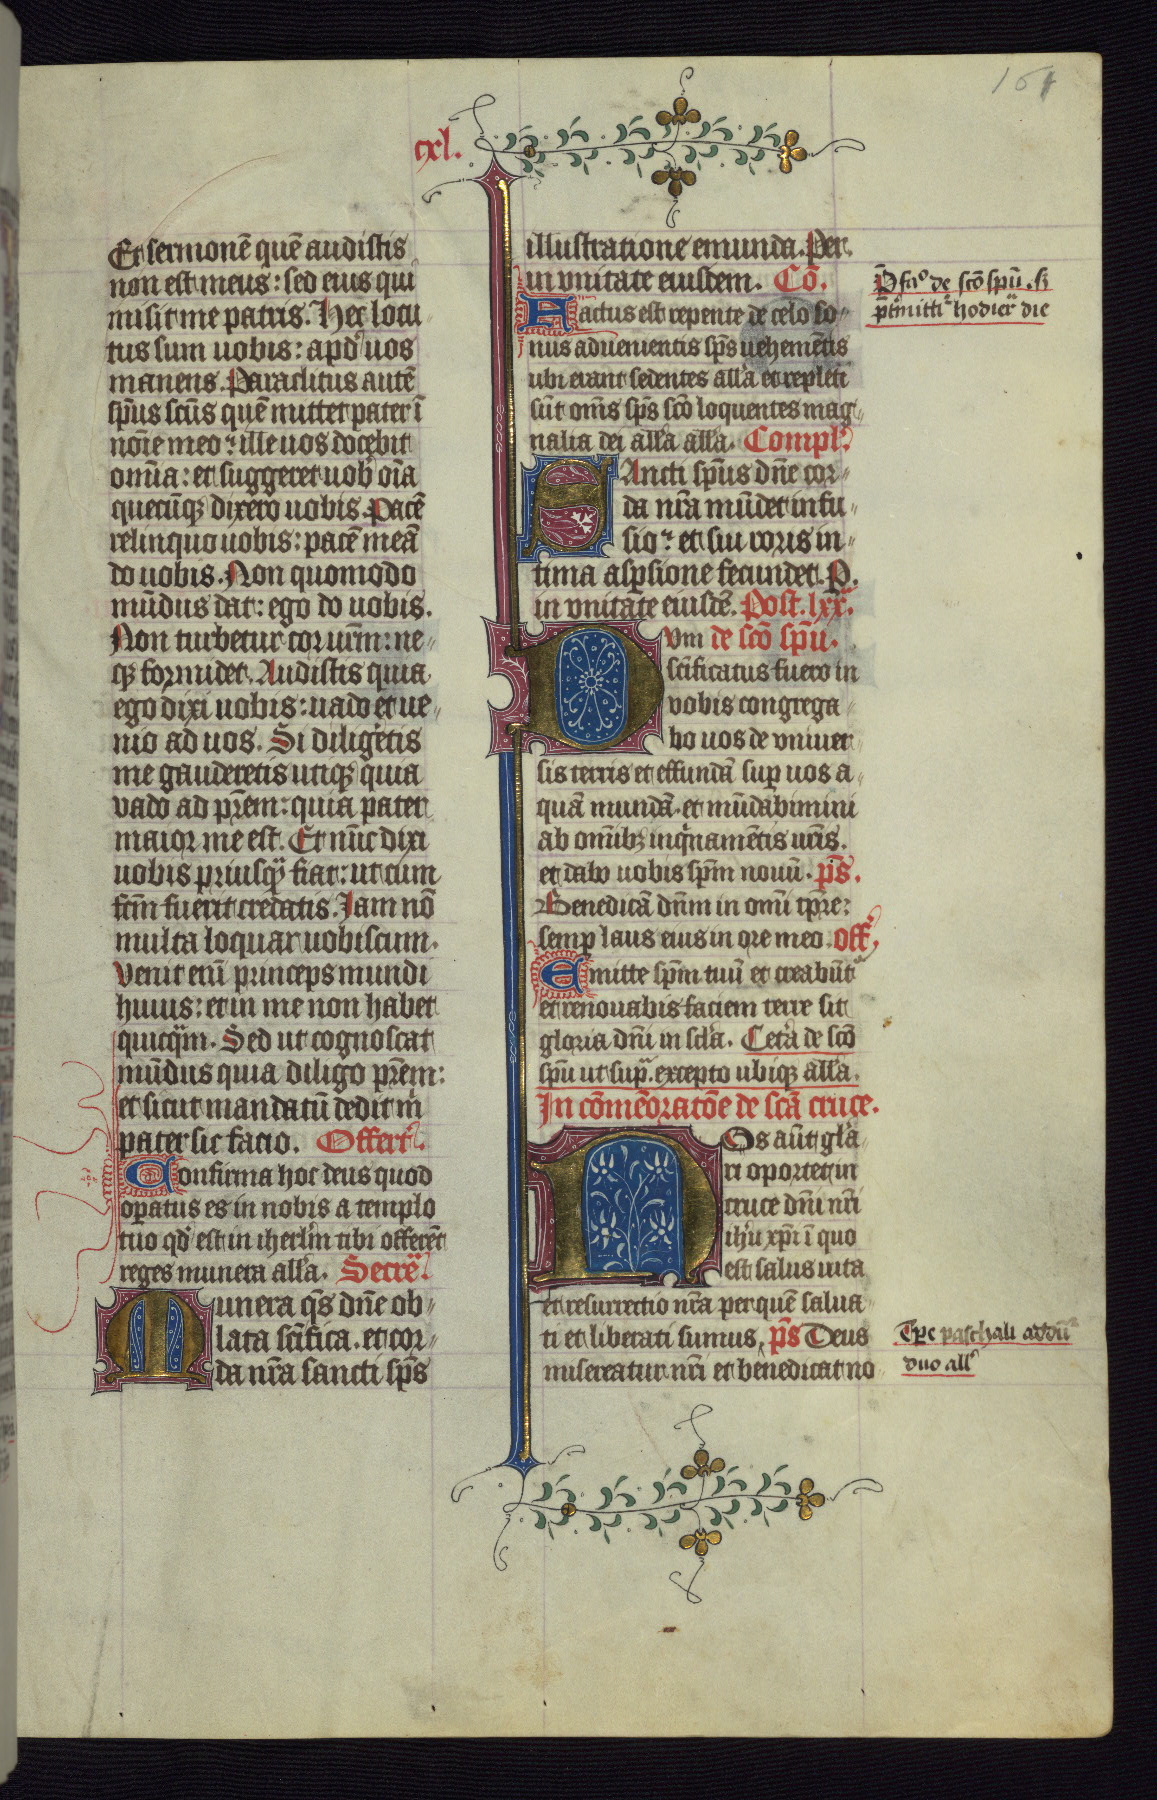 161
cxl.
Et sermonē quē audistis
non est meus: sed eius qui
misit me patris. Hec locu
tus sum uobis: apd' uos
manens. Paraclitus autē
sp̄us sc̄us quē mittet pater ī
noīe meo: ille uos docebit
omīa: et suggeret uob' oīa
quecūq; dixero uobis. Pacē
relinquo uobis: pacē meā
do uobis. Non quomodo
mūdus dat: ego do uobis.
Non turbetur cor ur̄m: ne-
q; formidet. Audistis quia
ego dixi uobis: uado et ue-
nio ad uos. Si diligētis
me gauderetis utiq; quia
vado ad pr̄em: quia pater
maior me est. Et nūc dixi
uobis priusq̄ fiat: ut cum
fc̄m fuerit credatis. Jam nō
multa loquar uobiscum.
Venit eni princeps mundi
huius: et in me non habet
quicq̄m. Sed ut cognoscat
mūdus quia diligo pr̄em:
et sicut mandatū dedit m̄
pater sic facio. Offert'.
Confirma hoc deus quod
opatus es in nobis a templo
tuo qd' est in iherl'm tibi offerēt
reges munera all'a. Secrē.
Munera q̄s dn̄e ob-
lata sc̄ifica. et cor-
da nr̄a sancti sp̄s
illustratione emunda. Per.
in vnitate eiusdem. Cō.
Factus est repente de celo so-
nus aduenientis sp̄s uehemētis
ubi erant sedentes all'a et repleti
sūt om̄s sp̄s sc̄o loquentes mag-
nalia dei all'a all'a. Compl'.
SAncti sp̄us dn̄e cor-
da nr̄a mūdet infu-
sio: et sui roris in-
tima asp̄sione fecundet. P.
in vnitate eiusdē. Post. lxx.
DVm de sc̄o sp̄u.
sc̄ificatus fuero in
vobis congrega-
bo uos de vniuer
sis terris et effundā sup uos a-
quā mundā. et mūdabimini
ab omībꝫ inq̄namētis ur̄is.
et dabo uobis sp̄m nouū. p̄s.
Benedicā dn̄m in omī tp̄re:
semp laus eius in ore meo. Off'.
Emitte sp̄m tuū et creabūt'
et renouabis faciem terre sit
gloria dn̄i in sc'la. Cet'a de sc̄o
sp̄u ut sup̄. excepto ubiq; all'a.
In cōmēoratōe de sc̄a cruce.
NOs aūt gl'a
ri oportet in
cruce dn̄i nr̄i
ih'u xp̄i ī quo
est salus uita
et resurrectio nr̄a per quē salua
ti et liberati sumus. p̄s Deus
misereatur nr̄i et benedicat no
P̄fa° de sc̄o sp̄u. s;
p̄t'mittit' hodier' die
Tp̄e paschali addūt'
duo all'